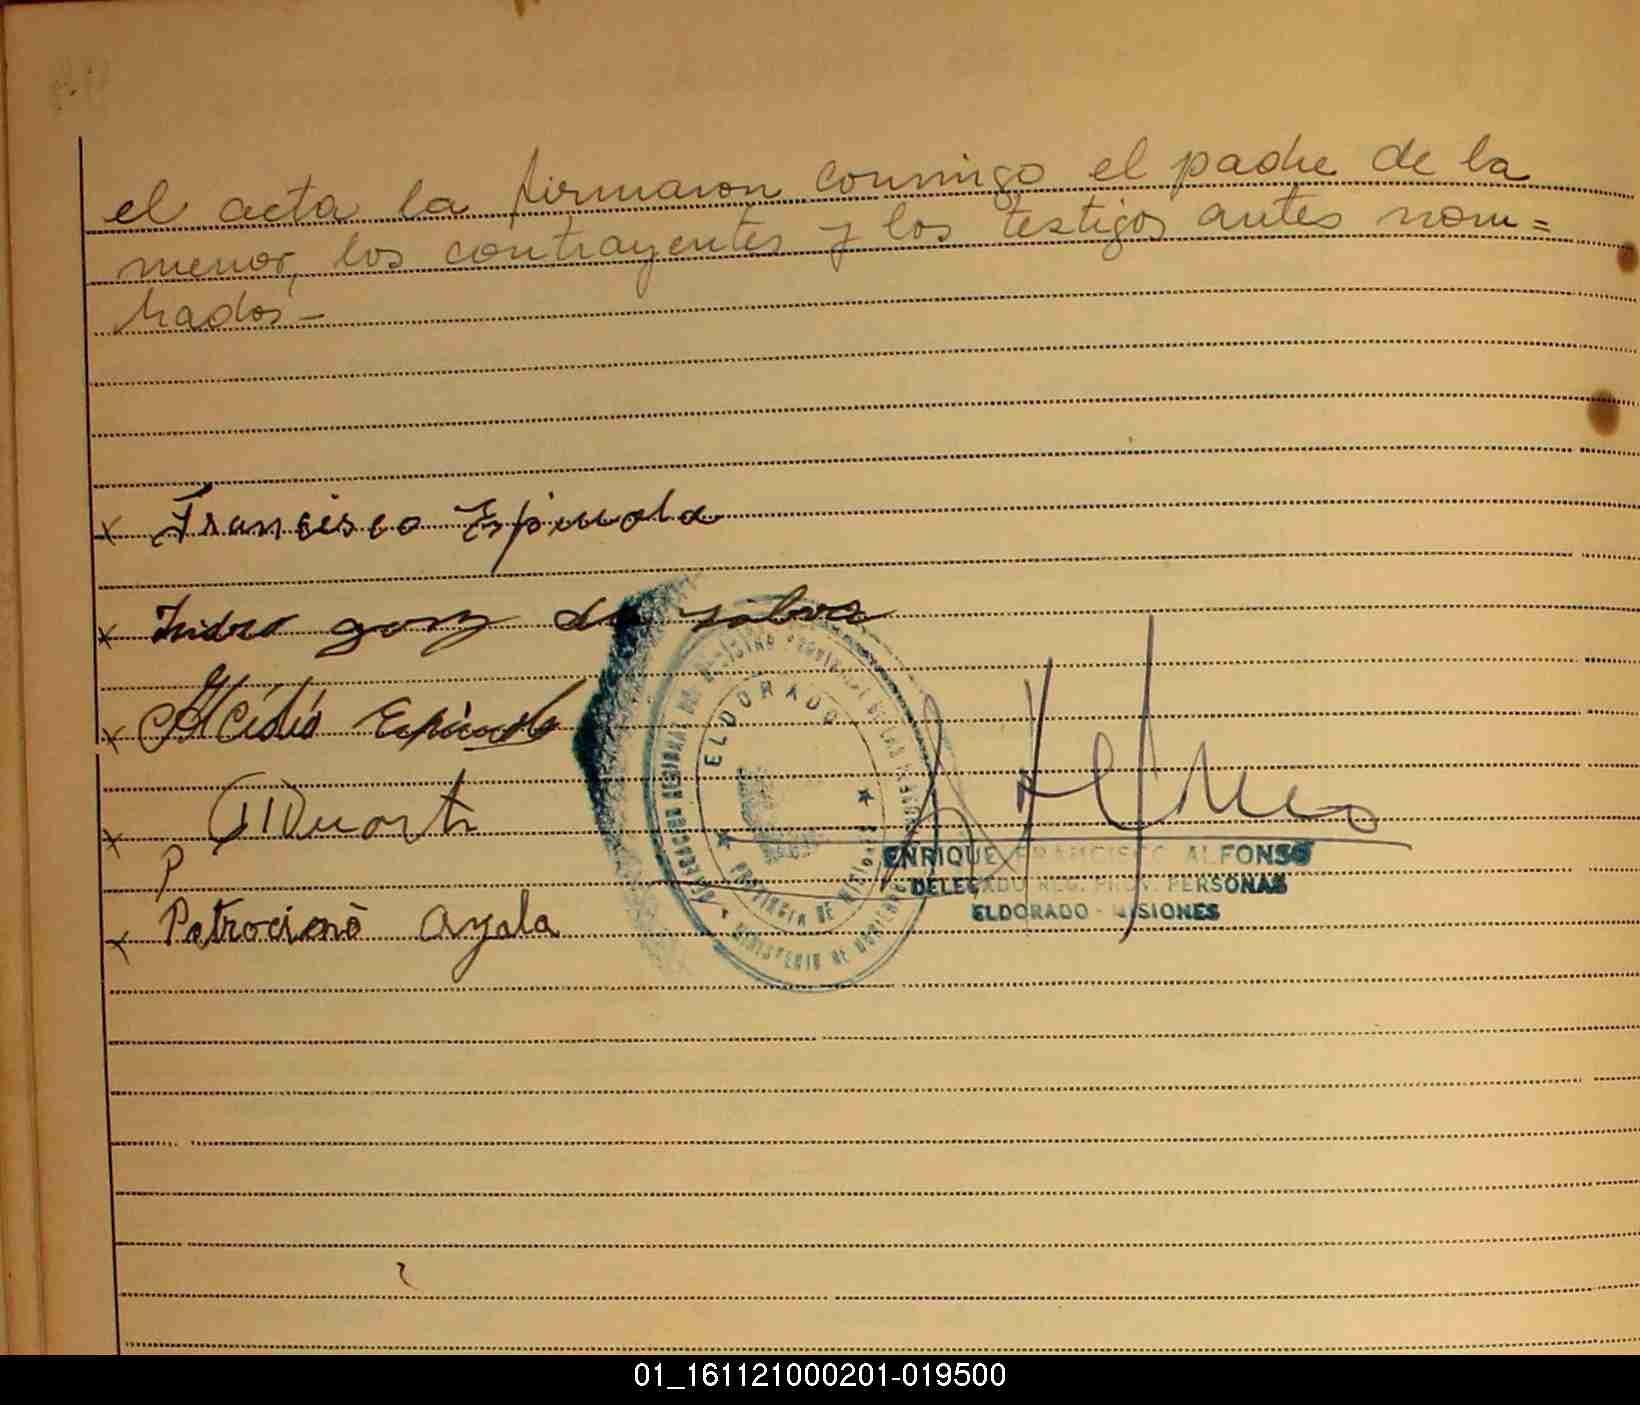 el acta la firmaron conmigo el padre de la
menor, los contrayentes y los testigos antes nom=
brados-
x Francisco Espinola
x Isidro gomz da silva
x Alcidio Espinola
x Duarte
P
x Petrocinè ayala
ELDORADO
PROVINCIA DE MISIONES
MINISTERIO DE
ENRIQUE FRANCISCO ALFONSO
DELEGADO REG. PROV. PERSONAS
ELDORADO - MISIONES
01_161121000201-019500